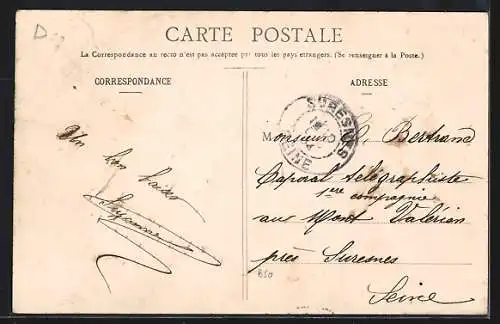 D
CARTE POSTALE
La Correspondance au recto n'est pas acceptée par tous les pays étrangers. (Se renseigner à la Poste.)
CORRESPONDANCE
ADRESSE
Un bon baiser
Suzanne
SURESNES
SEINE
Monsieur Bertrand
Caporal télégraphiste
1ere compagnie
au Mont Valérien
près Suresnes
Seine
B50